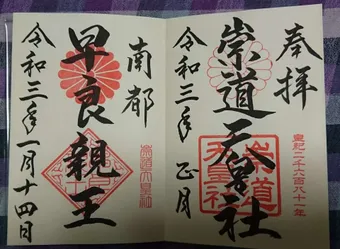 奉拝
崇道天皇社
令和三年正月
皇紀二千六百八十一年
崇道
天皇社
南都
早良親王
令和三年一月十四日
崇道天皇社